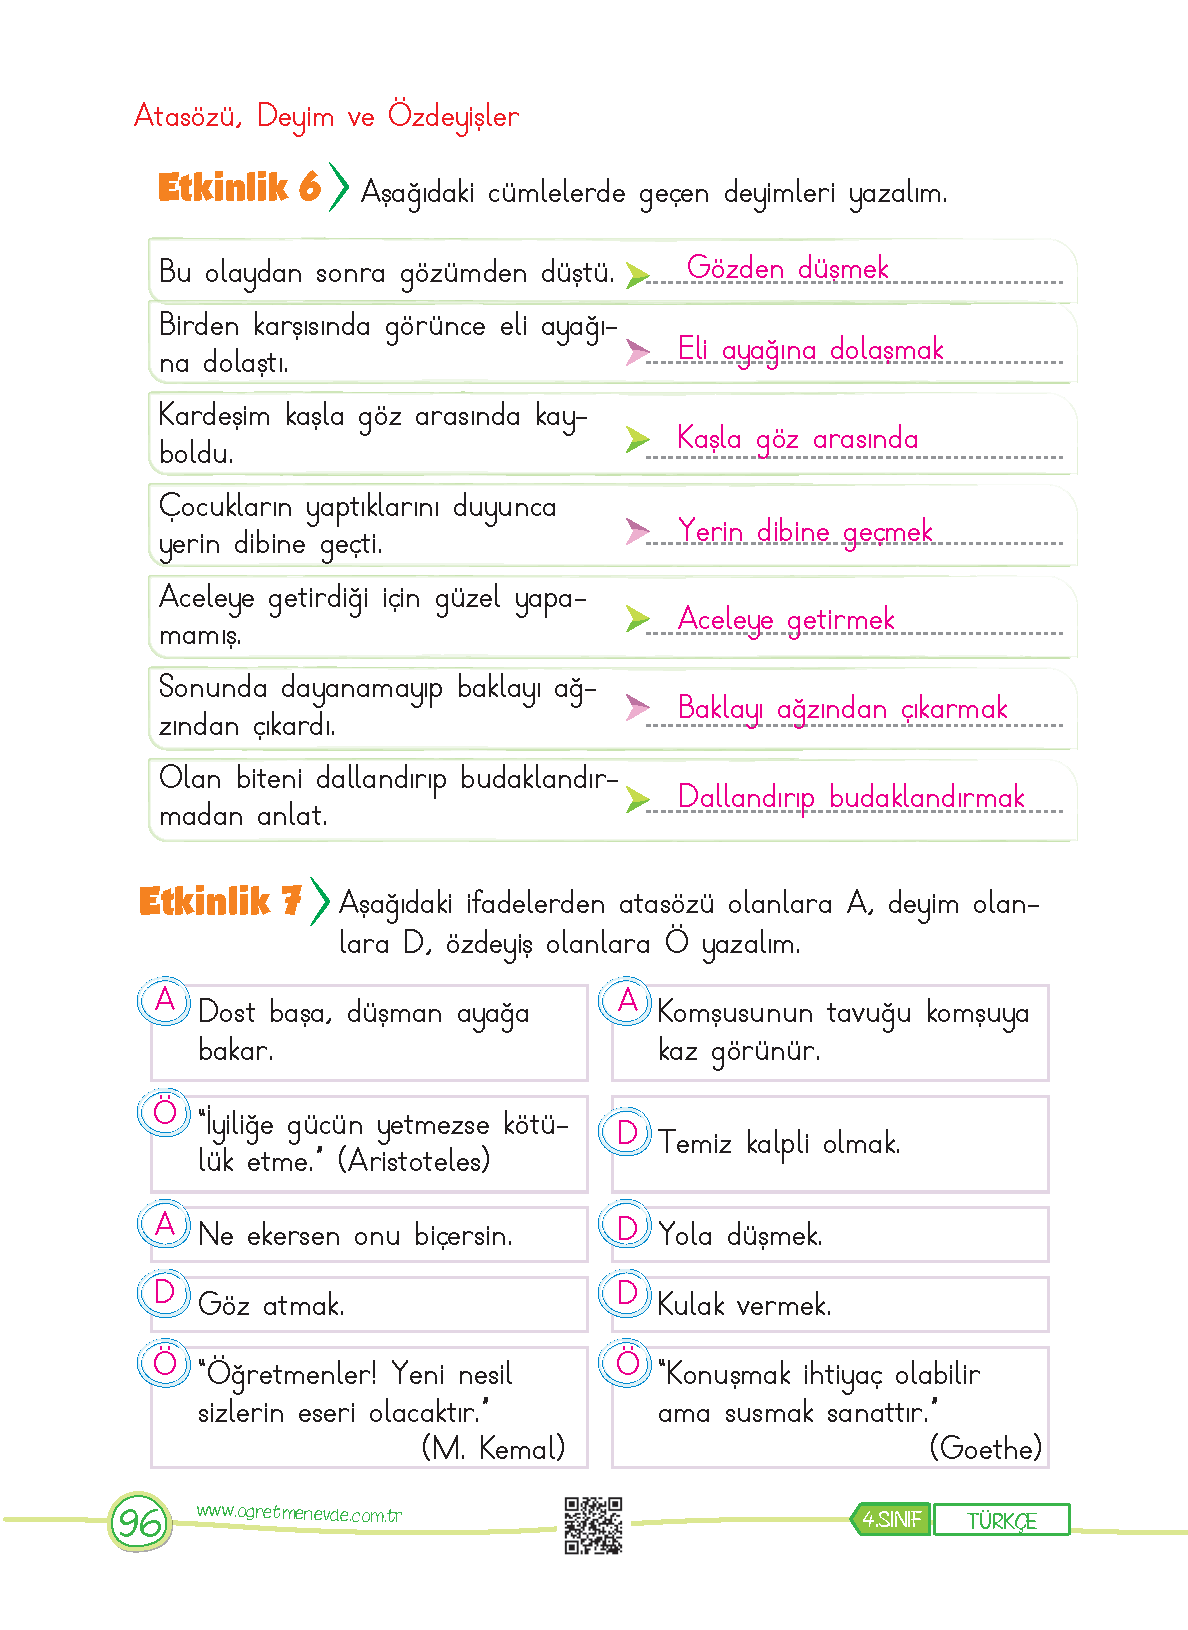 Atasözü, Deyim ve Özdeyişler
Etkinlik 6 Aşağıdaki cümlelerde geçen deyimleri yazalım.
Bu olaydan sonra gözümden düştü. Gözden düşmek
Birden karşısında görünce eli ayağı-
na dolaştı.
Eli ayağına dolaşmak
Kardeşim kaşla göz arasında kay-
boldu.
Kaşla göz arasında
Çocukların yaptıklarını duyunca
yerin dibine geçti.
Yerin dibine geçmek
Aceleye getirdiği için güzel yapa-
mamış.
Aceleye getirmek
Sonunda dayanamayıp baklayı ağ-
zından çıkardı.
Baklayı ağzından çıkarmak
Olan biteni dallandırıp budaklandır-
madan anlat.
Dallandırıp budaklandırmak
Etkinlik 7 Aşağıdaki ifadelerden atasözü olanlara A, deyim olan-
lara D, özdeyiş olanlara Ö yazalım.
A Dost başa, düşman ayağa
bakar.
A Komşusunun tavuğu komşuya
kaz görünür.
Ö "İyiliğe gücün yetmezse kötü-
lük etme." (Aristoteles)
D Temiz kalpli olmak.
A Ne ekersen onu biçersin.
D Yola düşmek.
D Göz atmak.
D Kulak vermek.
Ö "Öğretmenler! Yeni nesil
sizlerin eseri olacaktır."
(M. Kemal)
Ö "Konuşmak ihtiyaç olabilir
ama susmak sanattır."
(Goethe)
96 www.ogretmenevde.com.tr 4.SINIF TÜRKÇE